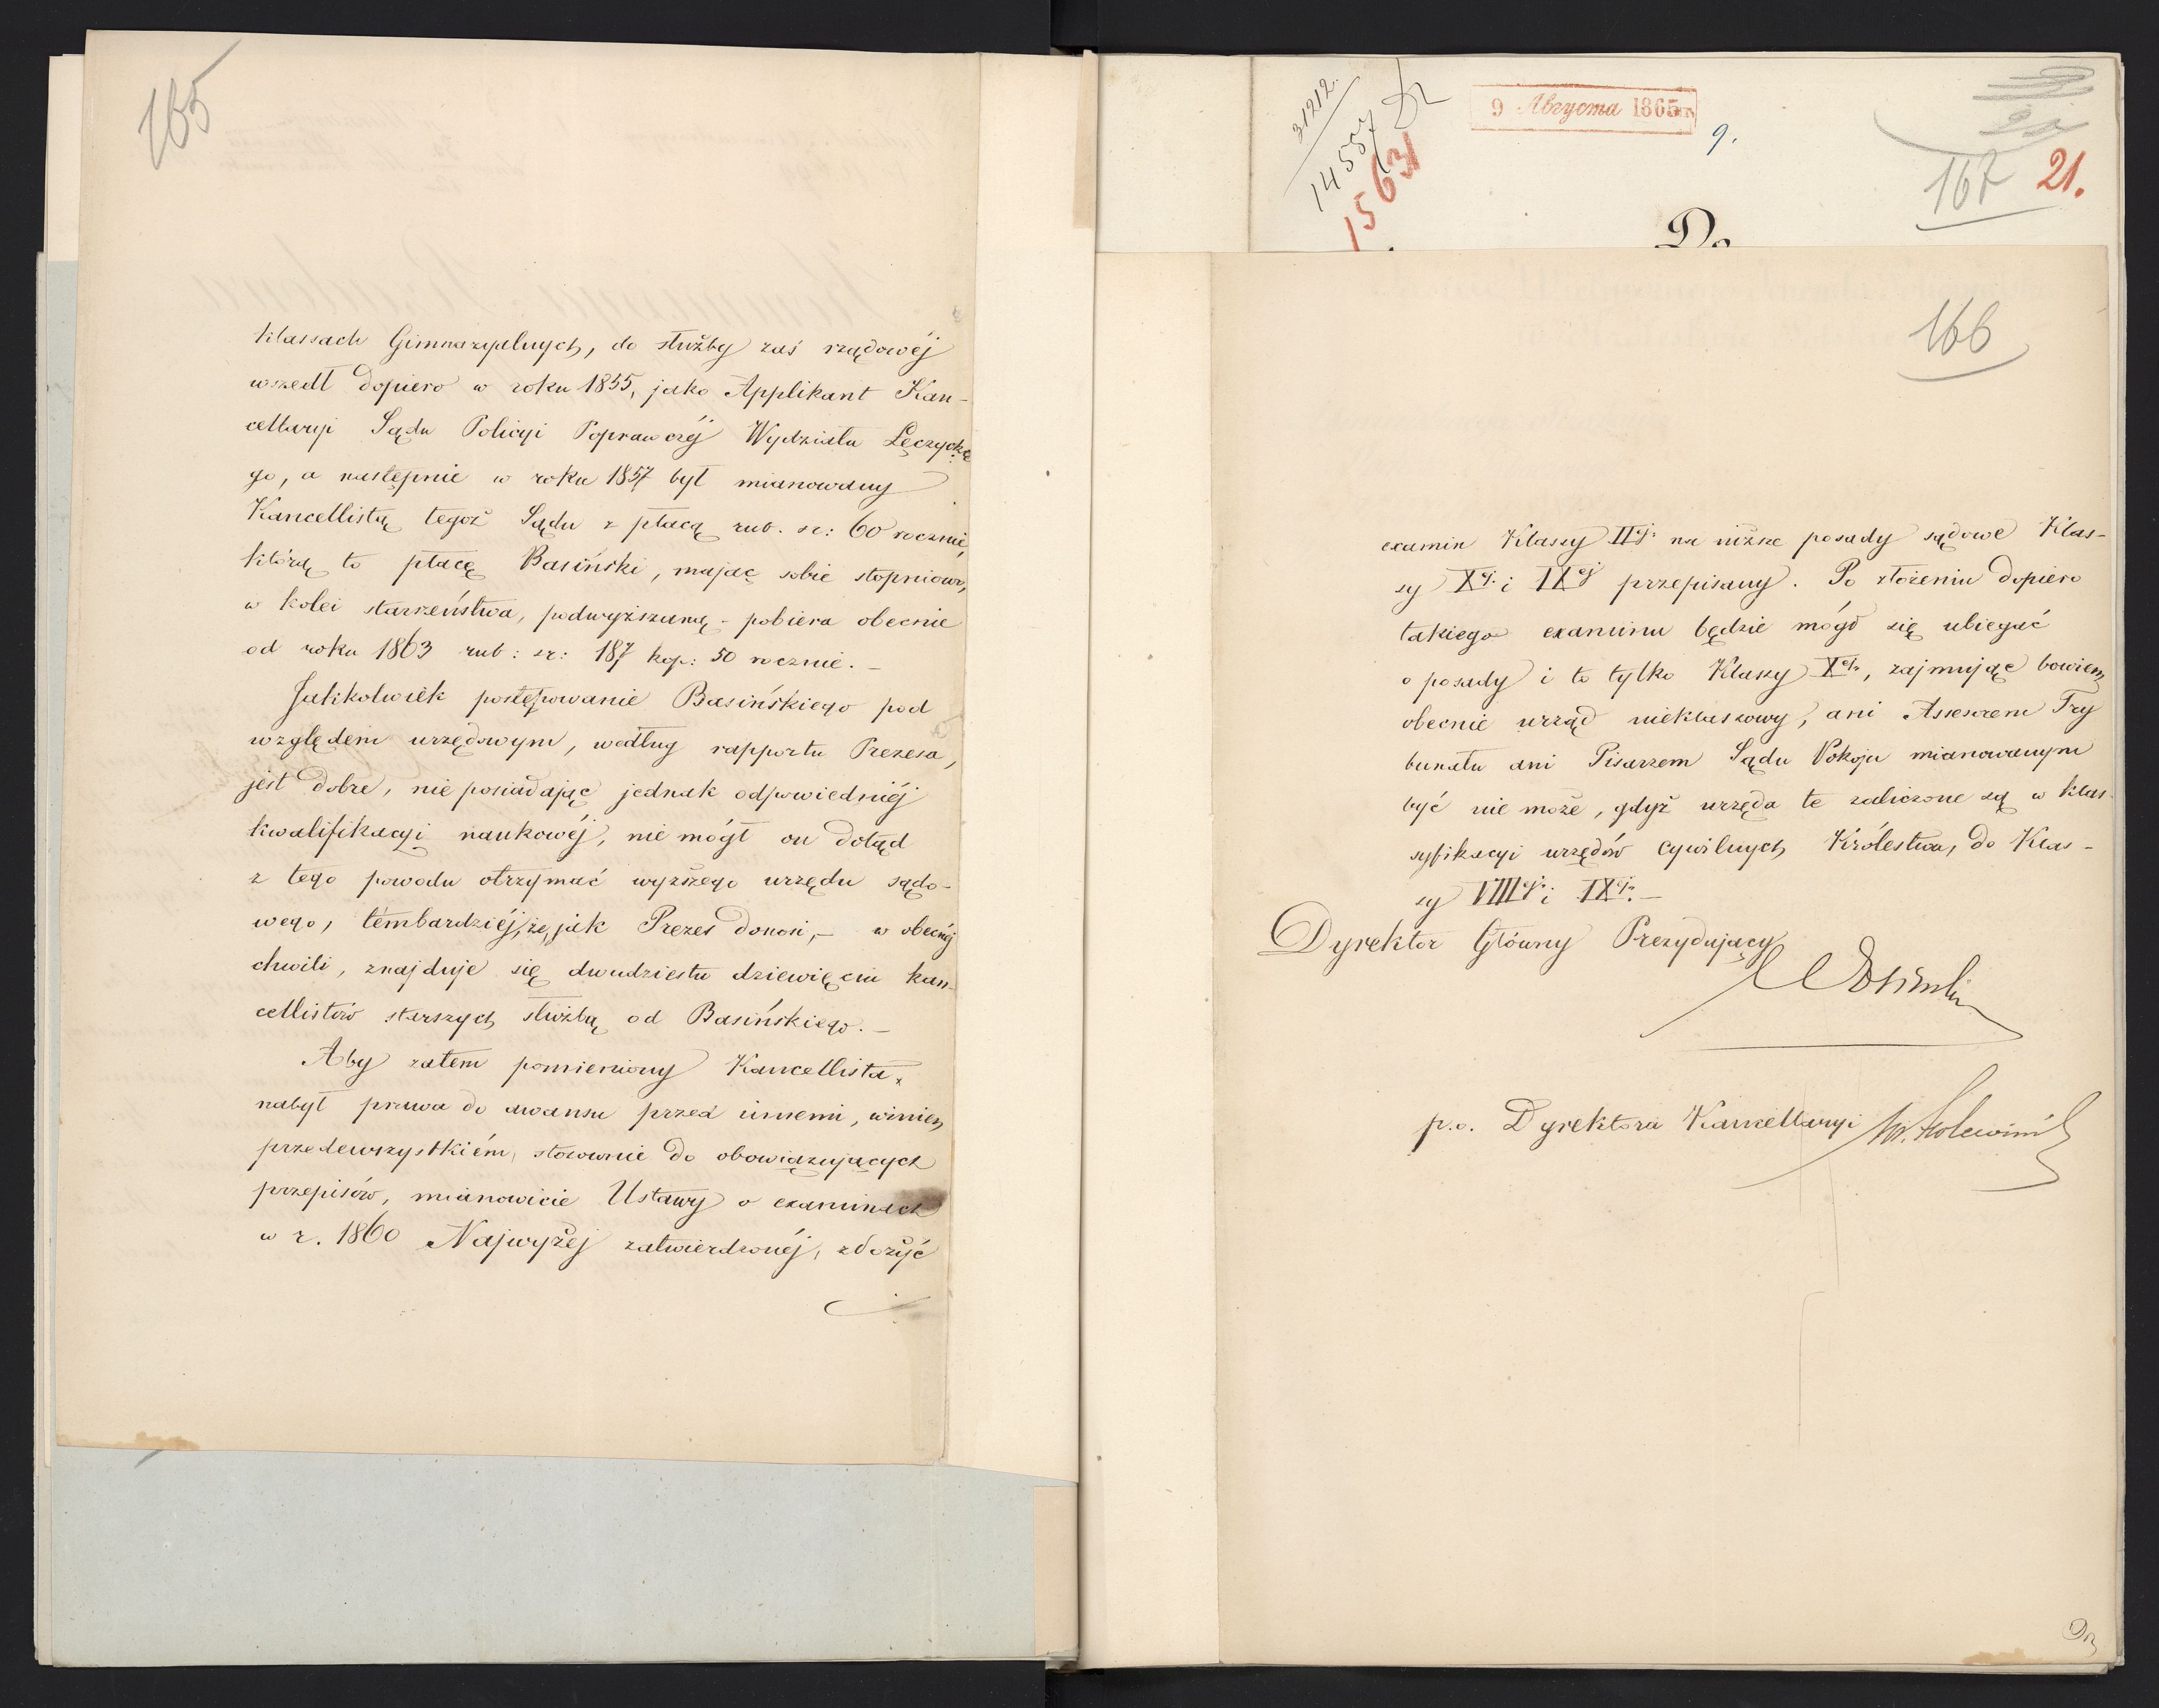 165
klassach Gimnazyalnych, do służby zaś rządowéj
wszedł dopiero w roku 1855, jako Applikant Kan-
cellaryi Sądu Policyi Poprawczéj Wydziału Łęczycke
go, a następnie w roku 1857 był mianowany
Kancellistą tegoż Sądu z płacą rub. sr: 60 rocznie,
którą to płacę Basiński, mając sobie stopniowo,
w kolei starszeństwa, podwyższaną - pobiera obecnie
od roku 1863 rub: sr: 187 kop: 50 rocznie. -
Jakkolwiek postępowanie Basińskiego pod
względem urzędowym, według rapportu Prezesa,
jest dobre, nie posiadając jednak odpowiedniéj
kwalifikacyi naukowéj, nie mógł on dotąd
z tego powodu otrzymać wyższego urzędu sądo-
wego, témbardziéj, że, jak Prezes donosi, - w obecnéj
chwili, znajduje się dwudziestu dziewięciu kan-
cellistów starszych służbą od Basińskiego. -
Aby zatem pomieniony Kancellista,
nabył prawa do awansu przed innemi, winien
przedewszystkiém, stosownie do obowiązujących
przepisów, mianowicie Ustawy o examinach
w r. 1860 Najwyżej zatwierdzonéj, złożyć
31212.
14557
15631
9 Августа 1865 г.
9.
167 21.
Do
166
examin Klassy IIéj na niższe posady sądowe Klas-
sy Xéj i IXéj przepisany. Po złożeniu dopiero
takiego examinu będzie mógł się ubiegać
o posady i to tylko Klassy Xéj, zajmując bowiem
obecnie urząd nieklassowy, ani Assessorem Try
bunału ani Pisarzem Sądu Pokoju mianowanym
być nie może, gdyż urzęda te zaliczone są w klas-
syfikacyi urzędów cywilnych Królestwa, do Klas-
sy VIIIéj i IXéj. -
Dyrektor Główny Prezydujący
p.o. Dyrektora Kancellaryi